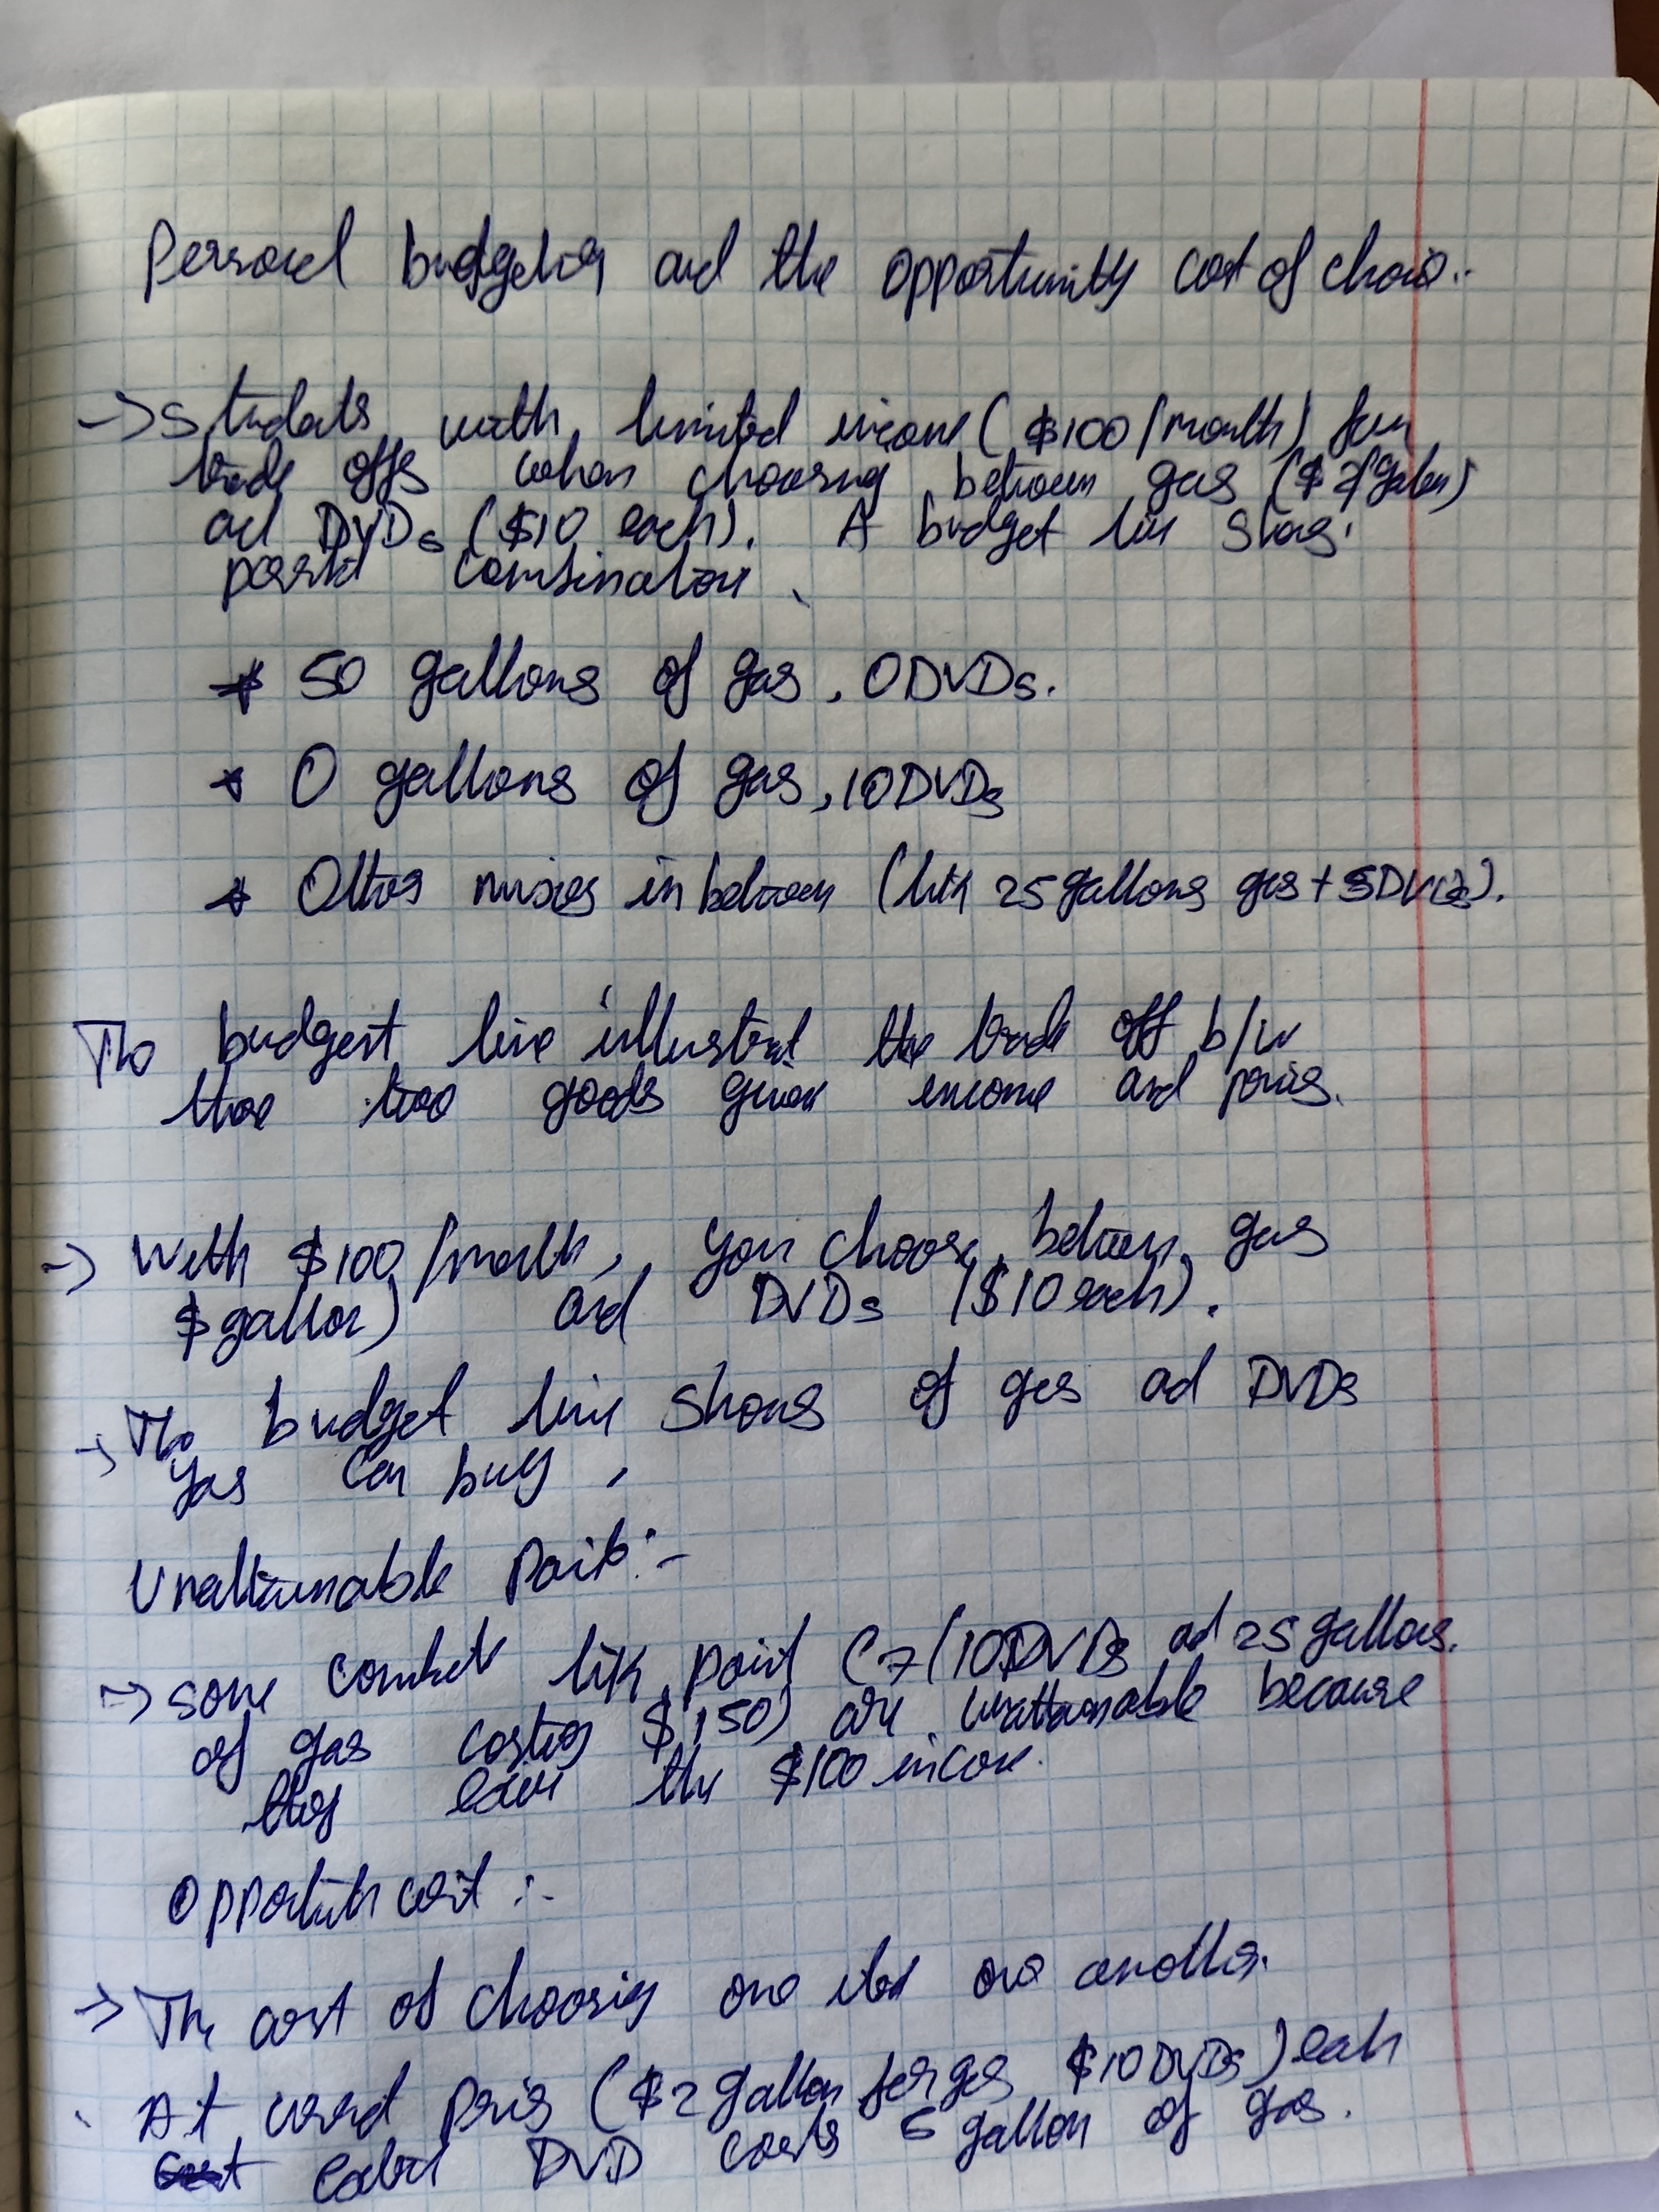 Personal budgeting and the opportunity cost of choice.
→ Students with limited income ($100/month) face
trade offs when choosing between gas ($2/gallon)
and DVDs ($10 each). A budget line shows
possible combination.
* 50 gallons of gas, 0 DVDs.
* 0 gallons of gas, 10 DVDs
* Other mixes in between (like 25 gallons gas + 5 DVDs).
The budgest line illustrat the trade off b/w
these two goods given income and prices.
→ With $100/month, you choose between gas
$gallon) and DVDs ($10 each).
→ The budget line shows of gas and DVDs
you can buy.
Unattainable Points:-
→ some like point C7 (10 DVDs and 25 gallons.
of gas costing $150) are unattainable because
they the $100 income.
Opportunity cost :-
→ The cost of choosing one over another.
At prices ($2 gallon for gas $10 DVDs) each
DVD costs 5 gallon of gas.